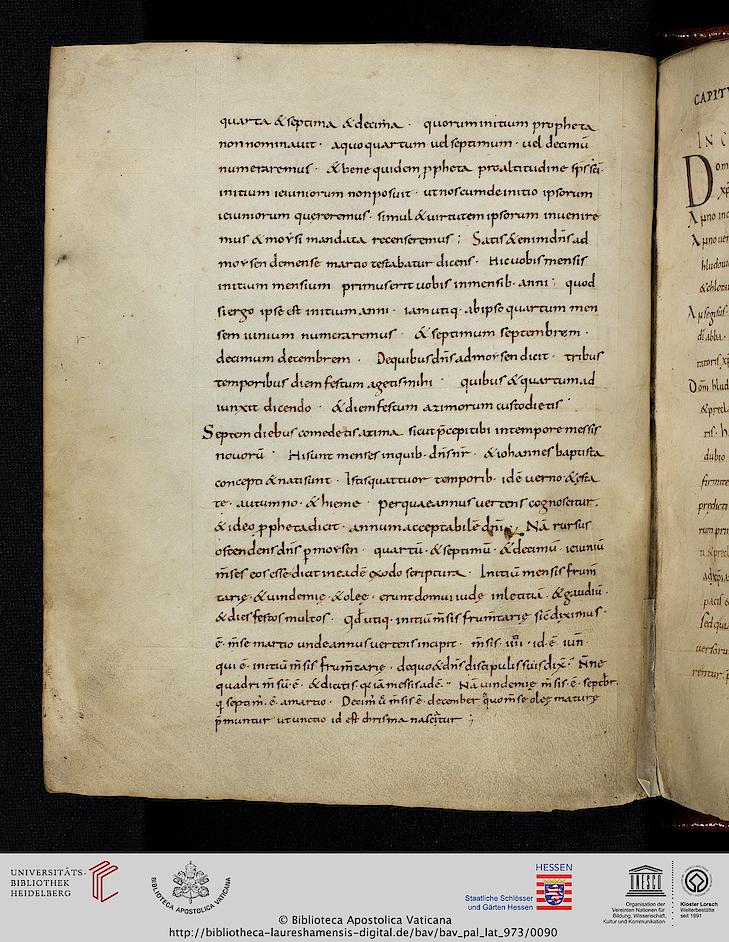 quarta & septima & decima · quorum initium propheta
non nominauit · a quo quartum uel septimum · uel decimū
numeraremus · & bene quidem ꝓpheta pro altitudine sp̄s sc̄i·
initium ieiuniorum non posuit · ut nos cum de initio ipsorum
ieiuniorum quereremus · simul & uirtutem ipsorum inuenire
mus & moẏsi mandata recenseremus ; Satis & enim dn̄s ad
moẏsen de mense martio testabatur dicens · Hic uobis mensis
initium mensium primus erit uobis in mensib· anni · quod
si ergo ipse est initium anni · iam utiq· ab ipso quartum men
sem iunium numeraremus · & septimum septembrem ·
decimum decembrem · De quibus dn̄s ad moẏsen dicit · tribus
temporibus diem festum agetis mihi · quibus & quartum ad
iunxit dicendo · & diem festum azimorum custodietis ·
Septem diebus comedetis azima sicut p̄cepi tibi in tempore messis
nouorū · Hi sunt menses in quib· dn̄s nr̄ · & iohannes baptista
concepti & nati sunt · Istis quattuor temporib· idē uerno & ęsta
te · autumno · & hieme · per quae annus uertens cognoscitur ·
& ideo ꝓpheta dicit · annum acceptabilē dn̄i Nā rursus
ostendens dn̄s p moẏsen · quartū · & septimū · & decimū · ieiuniū
m̄ses eos esse dicit in eadē exodo scriptura · Initiū mensis frum̄
tarię · & uindemię · & oleę · erunt domui iudę in letitia · & gaudiū ·
& dies festos multos · Qd̄ utiq· initiū m̄sis frum̄tarię sic̄ diximus ·
ē · m̄se martio unde annus uertens incipit · m̄sis · iiii · id · ē iun̄
qui ē · initiū m̄sis frum̄tarię · de quo & dn̄s discipulis suis dix̄ · Nn̄e
quadrim̄sū · ē · & dicitis · q̄a iā messis adē · Nā uindemię m̄sis · ē · septb̄r ·
q̄ septim̄ · ē · a martio · Decim̄ ū m̄sis ē · december quo m̄se oleę maturę
p̄muntur ut unctio id est chrisma nascitur ;
CAPITV
IN C
Dom
UNIVERSITÄTS-
BIBLIOTHEK
HEIDELBERG
BIBLIOTHECA APOSTOLICA VATICANA
Staatliche Schlösser
und Gärten Hessen
HESSEN
UNESCO
Organisation der
Vereinten Nationen für
Bildung, Wissenschaft,
Kultur und Kommunikation
Kloster Lorsch
Welterbestätte
seit 1991
© Biblioteca Apostolica Vaticana
http://bibliotheca-laureshamensis-digital.de/bav/bav_pal_lat_973/0090